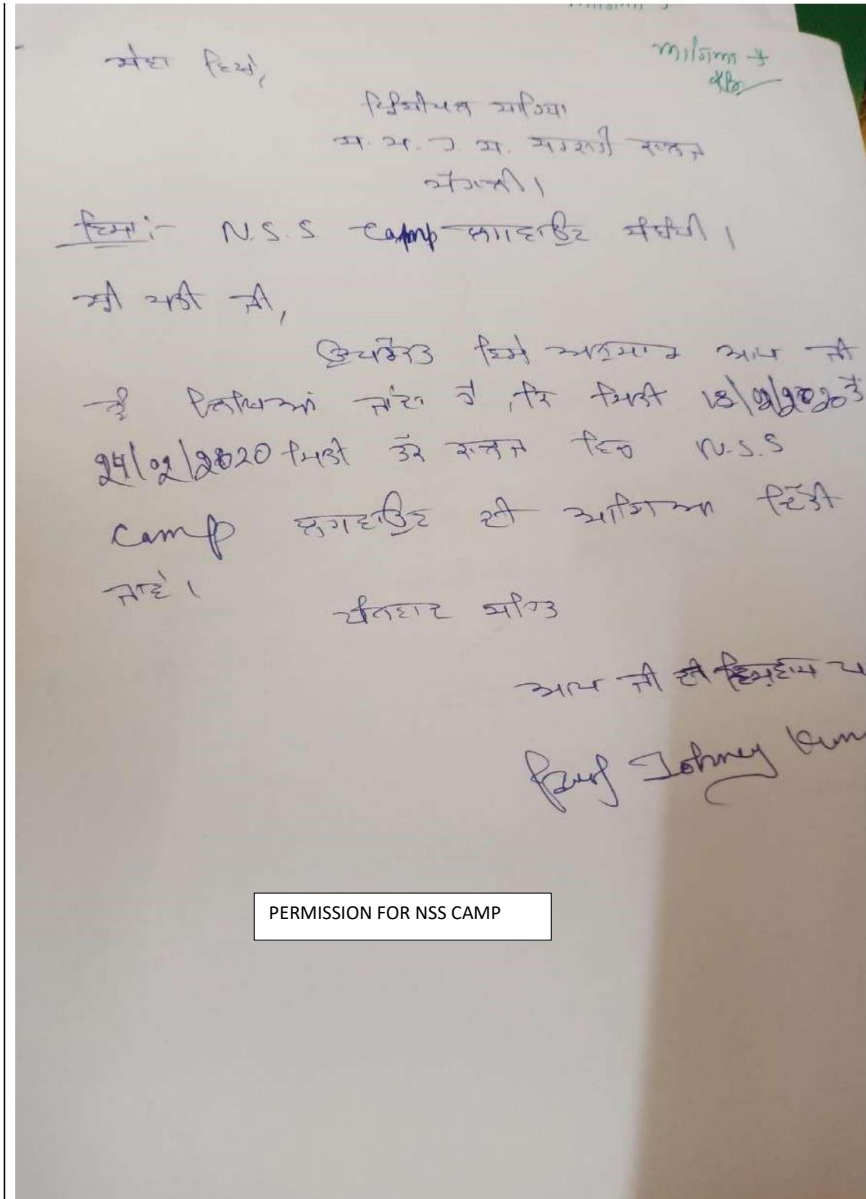 ਆਗਿਆ ਹੈ
ਸੇਵਾ ਵਿਖੇ,
ਪ੍ਰਿੰਸੀਪਲ ਸਾਹਿਬਾ
ਸ. ਸ. ਜ. ਸ. ਸਰਕਾਰੀ ਕਾਲਜ
ਵਿਸ਼ਾ:- N.S.S Camp ਲਗਾਵਾਉਣ ਸੰਬੰਧੀ।
ਸ਼੍ਰੀ ਮਤੀ ਜੀ,
ਉਪਰੋਕਤ ਵਿਸ਼ੇ ਅਨੁਸਾਰ ਆਪ ਜੀ
ਨੂੰ ਲਿਖਿਆਂ ਜਾਂਦਾ ਹੈ, ਕਿ ਮਿਤੀ 18/02/2020 ਤੋਂ
24/02/2020 ਮਿਤੀ ਤੱਕ ਕਾਲਜ ਵਿਚ N.S.S
Camp ਲਗਵਾਉਣ ਦੀ ਆਗਿਆ ਦਿੱਤੀ
ਜਾਵੇ।
ਧੰਨਵਾਦ ਸਹਿਤ
ਆਪ ਜੀ ਦੀ ਵਿਸ਼ਵਾਸ ਪਾ
Prof Johney Kum
PERMISSION FOR NSS CAMP